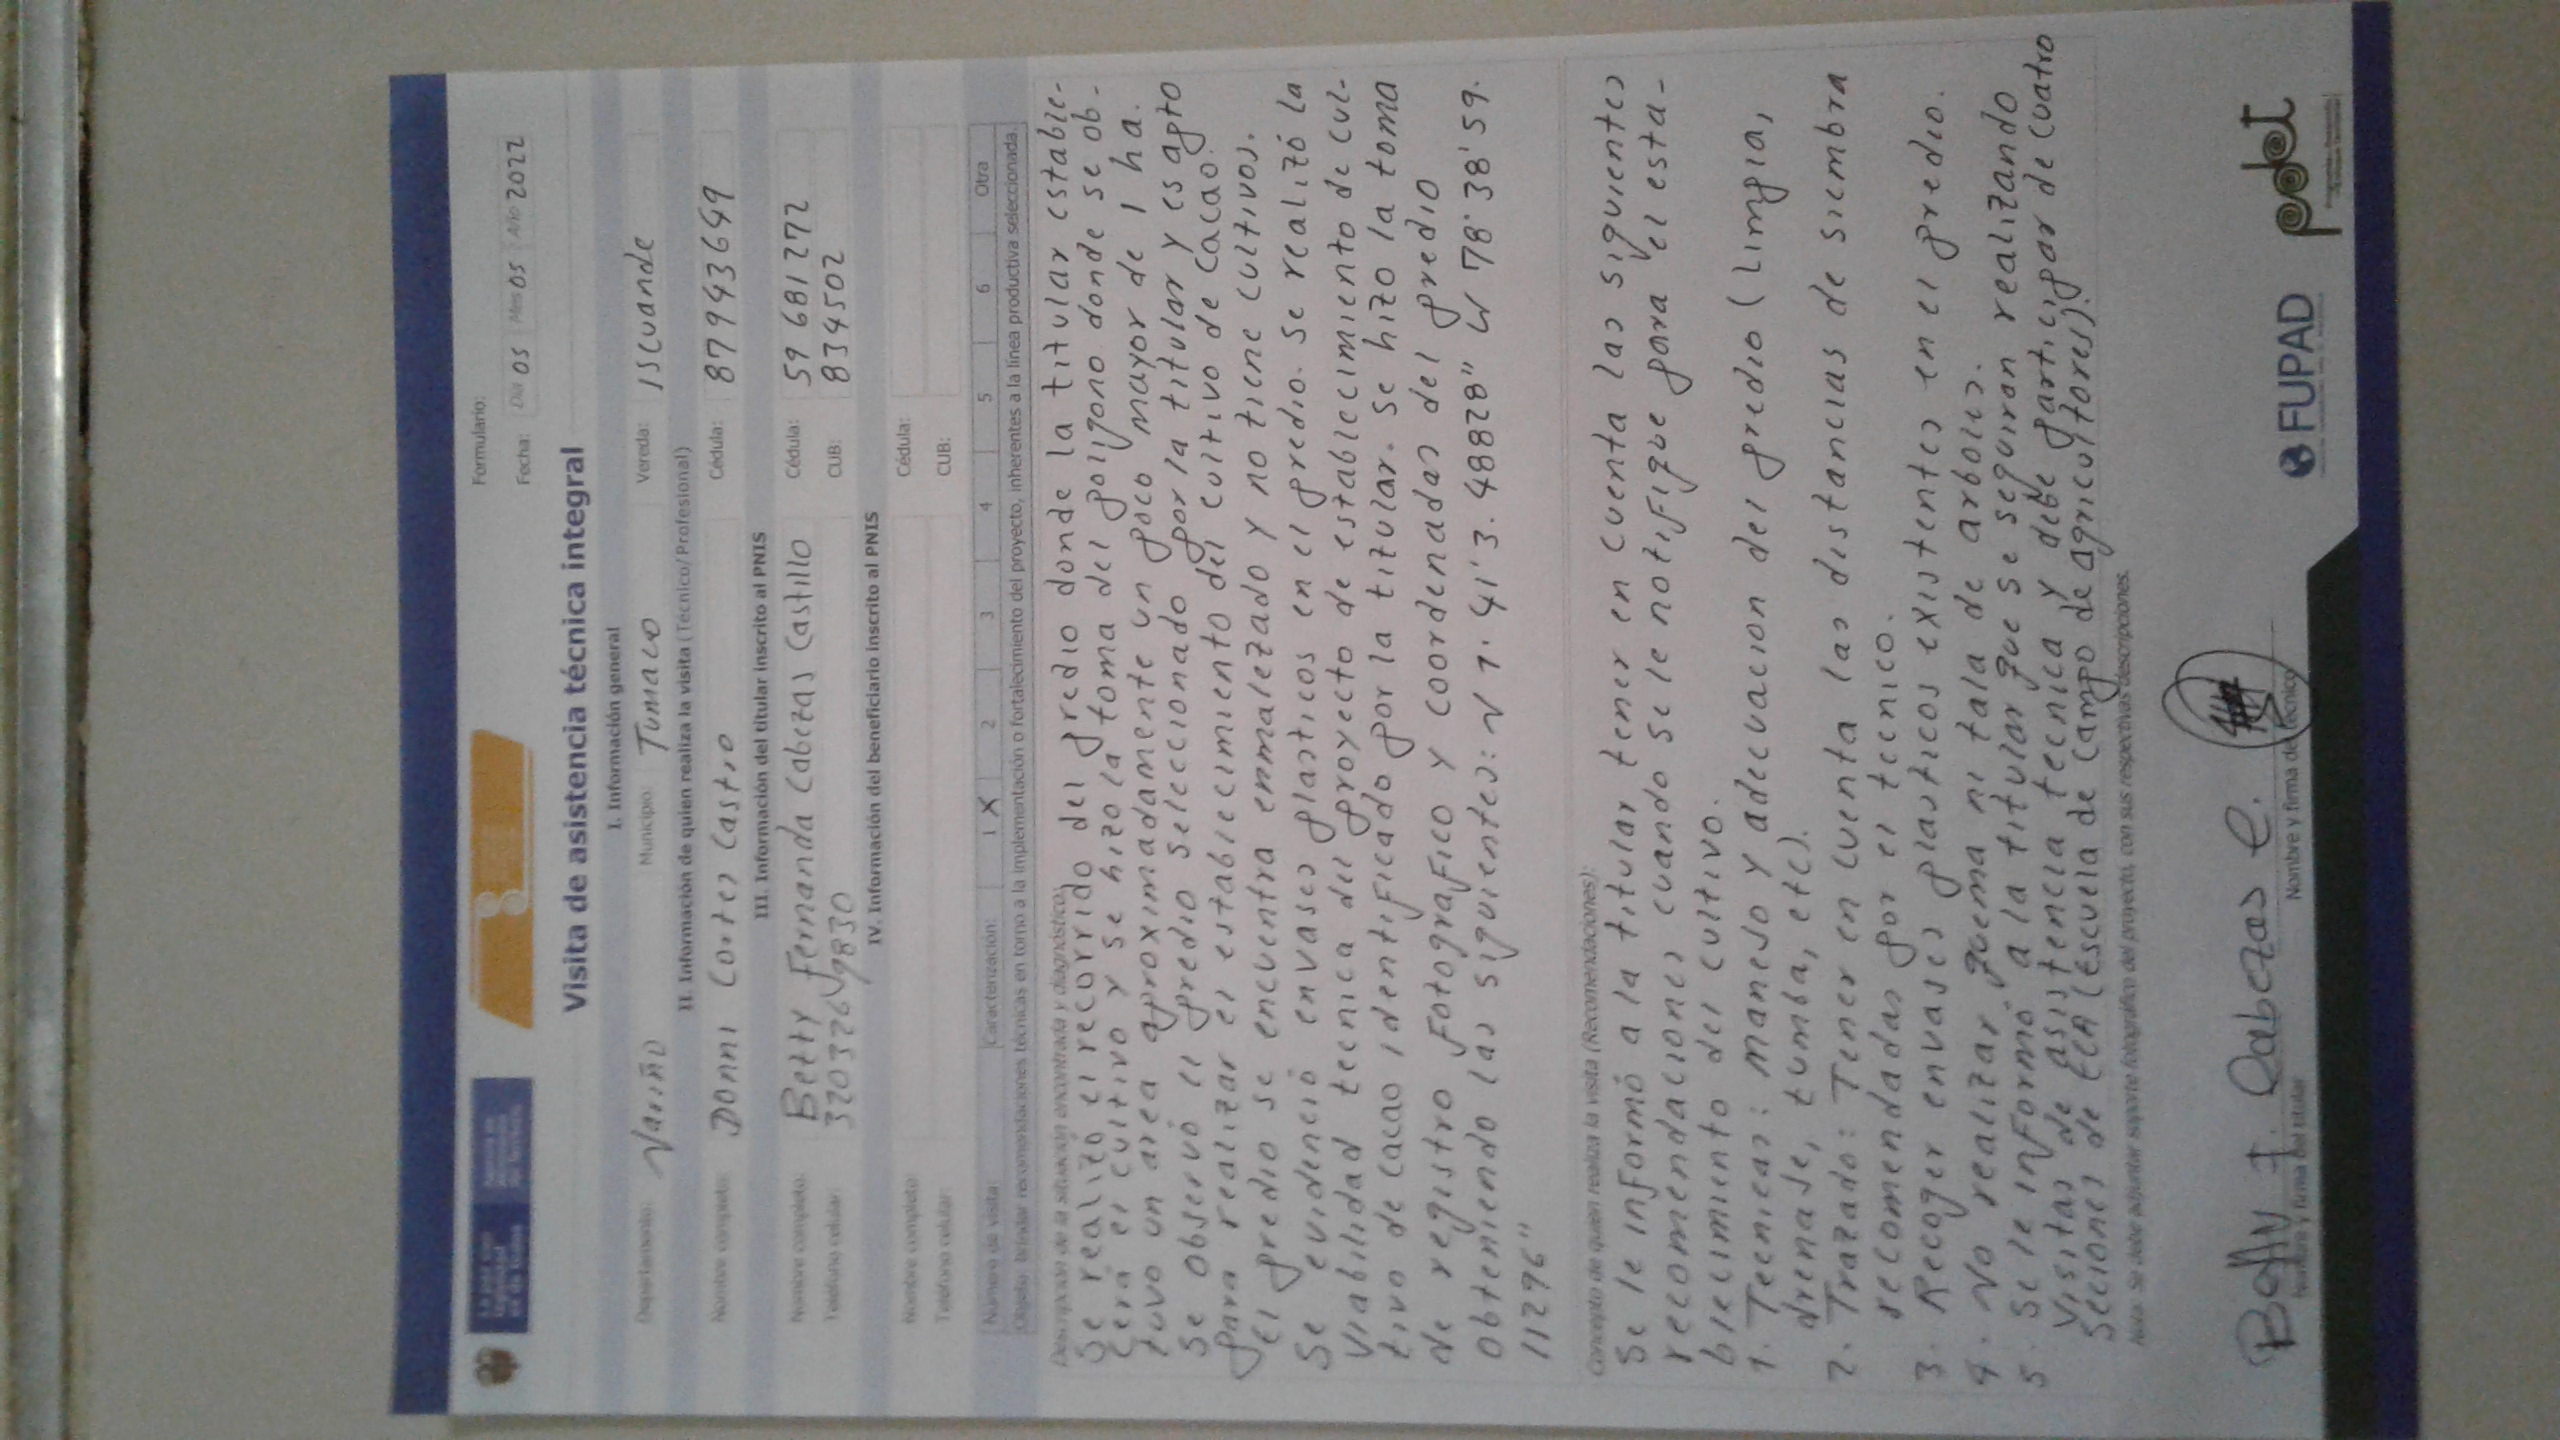 Formulario:
Fecha: Día 05 Mes 05 Año 2022
Visita de asistencia técnica integral
I. Información general
Departamento: Nariño Municipio: Tumaco Vereda: Iscuande
II. Información de quien realiza la visita (Técnico/Profesional)
Nombre completo: Donni Cortes Castro Cédula: 87943649
III. Información del titular inscrito al PNIS
Nombre completo: Betty Fernanda Cabezas Castillo Cédula: 59681272
Teléfono celular: 3203269830 CUB: 834502
IV. Información del beneficiario inscrito al PNIS
Nombre completo: Cédula:
Teléfono celular: CUB:
Número de visita: Caracterización: 1 X 2 3 4 5 6 Otra
Objeto: Brindar recomendaciones técnicas en torno a la implementación o fortalecimiento del proyecto, inherentes a la línea productiva seleccionada.
Descripción de la situación encontrada y diagnóstico:
Se realizó el recorrido del predio donde la titular estable-
cerá el cultivo y se hizo la toma del poligono donde se ob-
tuvo un area aproximadamente un poco mayor de 1 ha.
Se observó el predio seleccionado por la titular y es apto
para realizar el establecimiento del cultivo de cacao.
El predio se encuentra enmalezado y no tiene cultivos.
Se evidenció envases plasticos en el predio. Se realizó la
viabilidad tecnica del proyecto de establecimiento de cul-
tivo de cacao identificado por la titular. Se hizo la toma
de registro fotografico y coordenadas del predio
obteniendo las siguientes: N 1° 41' 3.48828" W 78° 38' 59.
11296"
Concepto de quien realiza la visita (Recomendaciones):
Se le informó a la titular tener en cuenta las siguientes
recomendaciones cuando se le notifique para el esta-
blecimiento del cultivo.
1. Tecnicas: manejo y adecuacion del predio (limpia,
drenaje, tumba, etc).
2. Trazado: Tener en cuenta las distancias de siembra
recomendadas por el tecnico.
3. Recoger envases plasticos existentes en el predio.
4. No realizar quema ni tala de arboles.
5. Se le informó a la titular que se seguiran realizando
visitas de asistencia tecnica y debe participar de cuatro
Secciones de ECA (escuela de campo de agricultores).
Nota: Se debe adjuntar soporte fotográfico del proyecto, con sus respectivas descripciones.
Betty F. Cabezas C.
Nombre y firma del titular Nombre y firma del técnico
FUPAD pdet